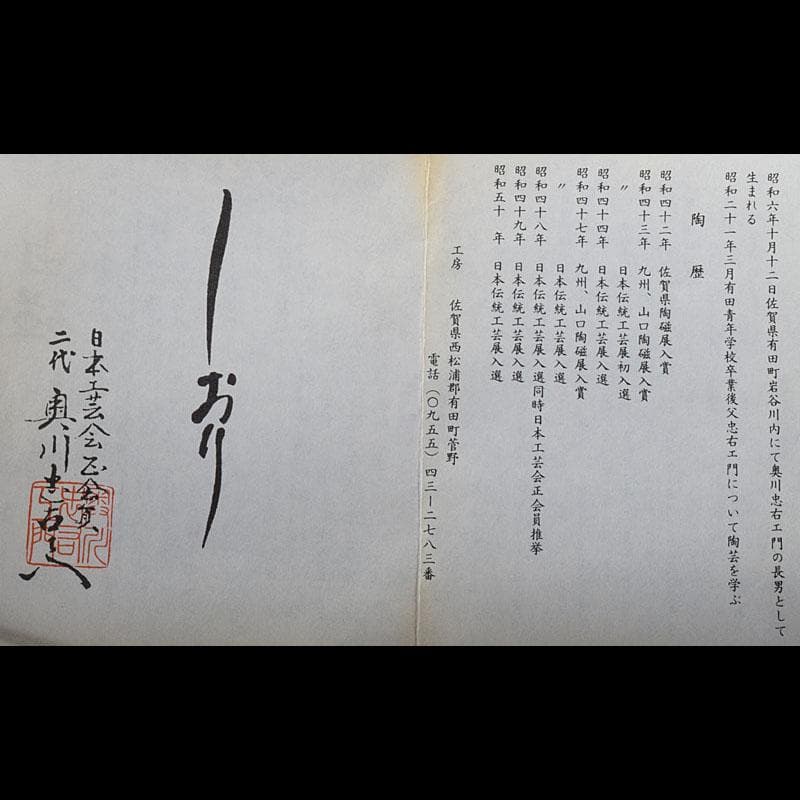 昭和六年十月十二日佐賀県有田町岩谷川内にて奥川忠右エ門の長男として
生まれる
昭和二十一年三月有田青年学校卒業後父忠右エ門について陶芸を学ぶ
陶歴
昭和四十二年 佐賀県陶磁展入賞
昭和四十三年 九州、山口陶磁展入賞
〃 日本伝統工芸展初入選
昭和四十四年 日本伝統工芸展入選
昭和四十七年 九州、山口陶磁展入賞
〃 日本伝統工芸展入選
昭和四十八年 日本伝統工芸展入選同時日本工芸会正会員推挙
昭和四十九年 日本伝統工芸展入選
昭和五十年 日本伝統工芸展入選
工房 佐賀県西松浦郡有田町菅野
電話(〇九五五)四三ー二七八三番
しおり
日本工芸会正会員、
二代奥川忠右エ門